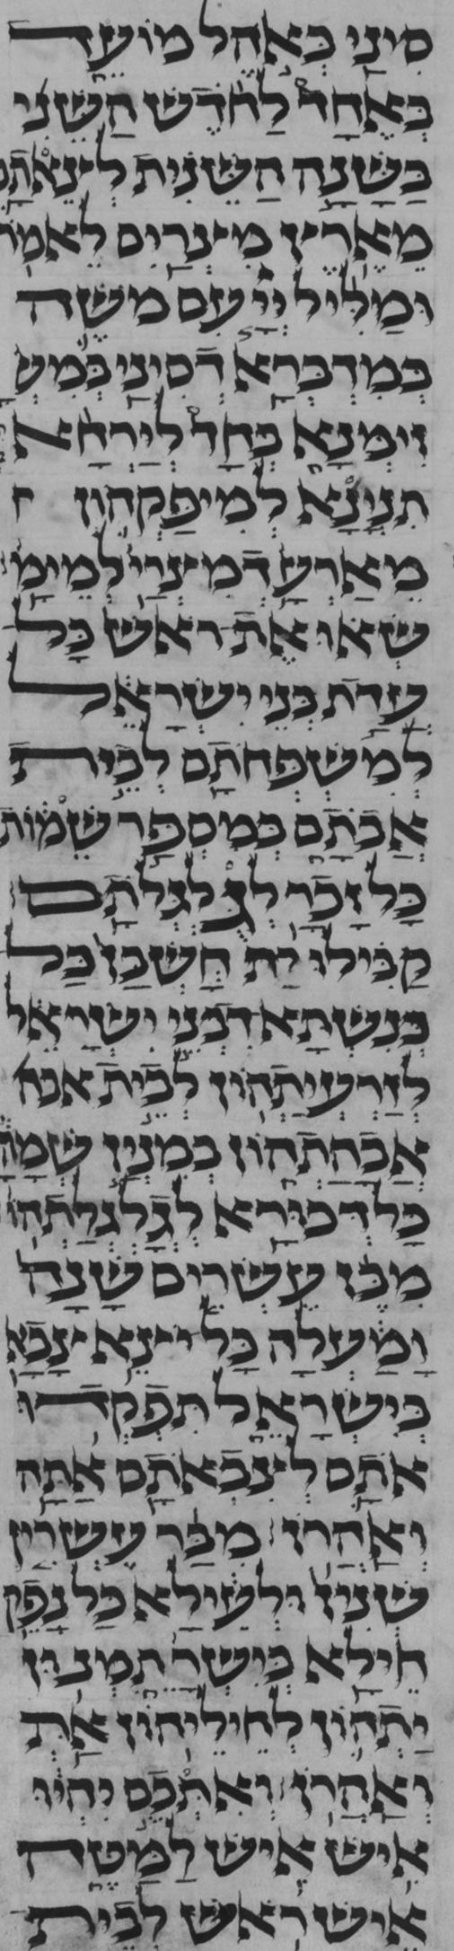 סיני באהל מועד
באחד לחדש השני
בשנה השנית לצאתם
מארץ מצרים לאמר
ומליל ייי עם משה
במדברא דסיני במש
זימנא בחד לירחא
תנינא למיפקהון
מארעא דמצרי למימ
שאו את ראש כל
עדת בני ישראל
למשפחתם לבית
אבתם במספר שמות
כל זכר לגלגלתם
קבילו ית חשבן כל
כנשתא דבני ישראל
לזרעיתהון לבית אבה
אבהתהון במנין שמה
כל דכורא לגלגלתהו
מבן עשרים שנה
ומעלה כל יצא צבא
בישראל תפקדו
אתם לצבאתם אתה
ואהרן מבר עשרין
שנין ולעילא כל נפק
חילא בישר תמנון
יתהון לחיליהון את
ואהרן ואתכם יהיו
איש איש למטה
איש ראש לבית